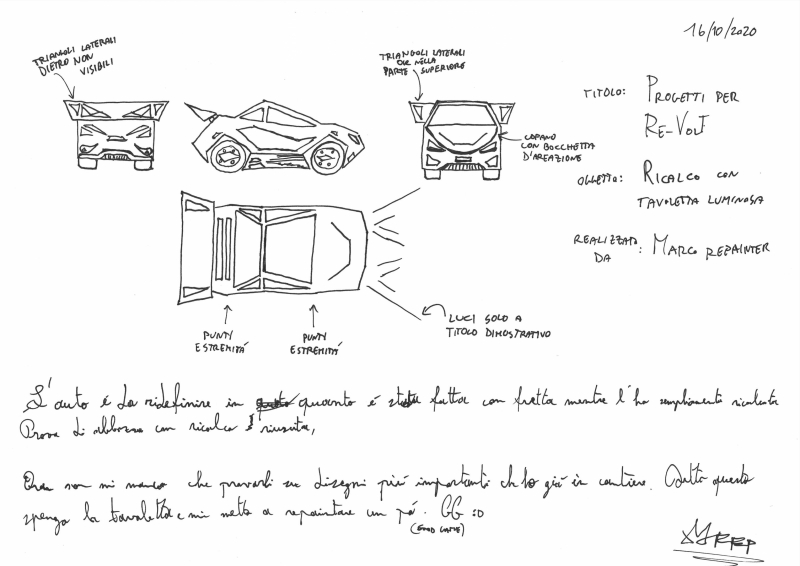 16/10/2020
TRIANGOLI LATERALI
DIETRO NON
VISIBILI
TRIANGOLI LATERALI
OK NELLA
PARTE SUPERIORE
COFANO
CON BOCCHETTA
D'AREAZIONE
TITOLO: PROGETTI PER
RE-VOLT
OGGETTO: RICALCO CON
TAVOLETTA LUMINOSA
REALIZZATO
DA : MARCO REPAINTER
PUNTI
ESTREMITÁ
PUNTI
ESTREMITÁ
LUCI SOLO A
TITOLO DIMOSTRATIVO
L'auto é da ridefinire in quanto é stata fatta con fretta mentre l'ho semplicemente ricalcata
Prova di abbozzo con ricalco é riuscita,
Ora non mi manca che provarli su disegni piú importanti ch ho giá in cantiere. Detto questo
spengo la tavoletta e mi metto a repaintare un pó. GG :D
(GOOD GAME)
MREP